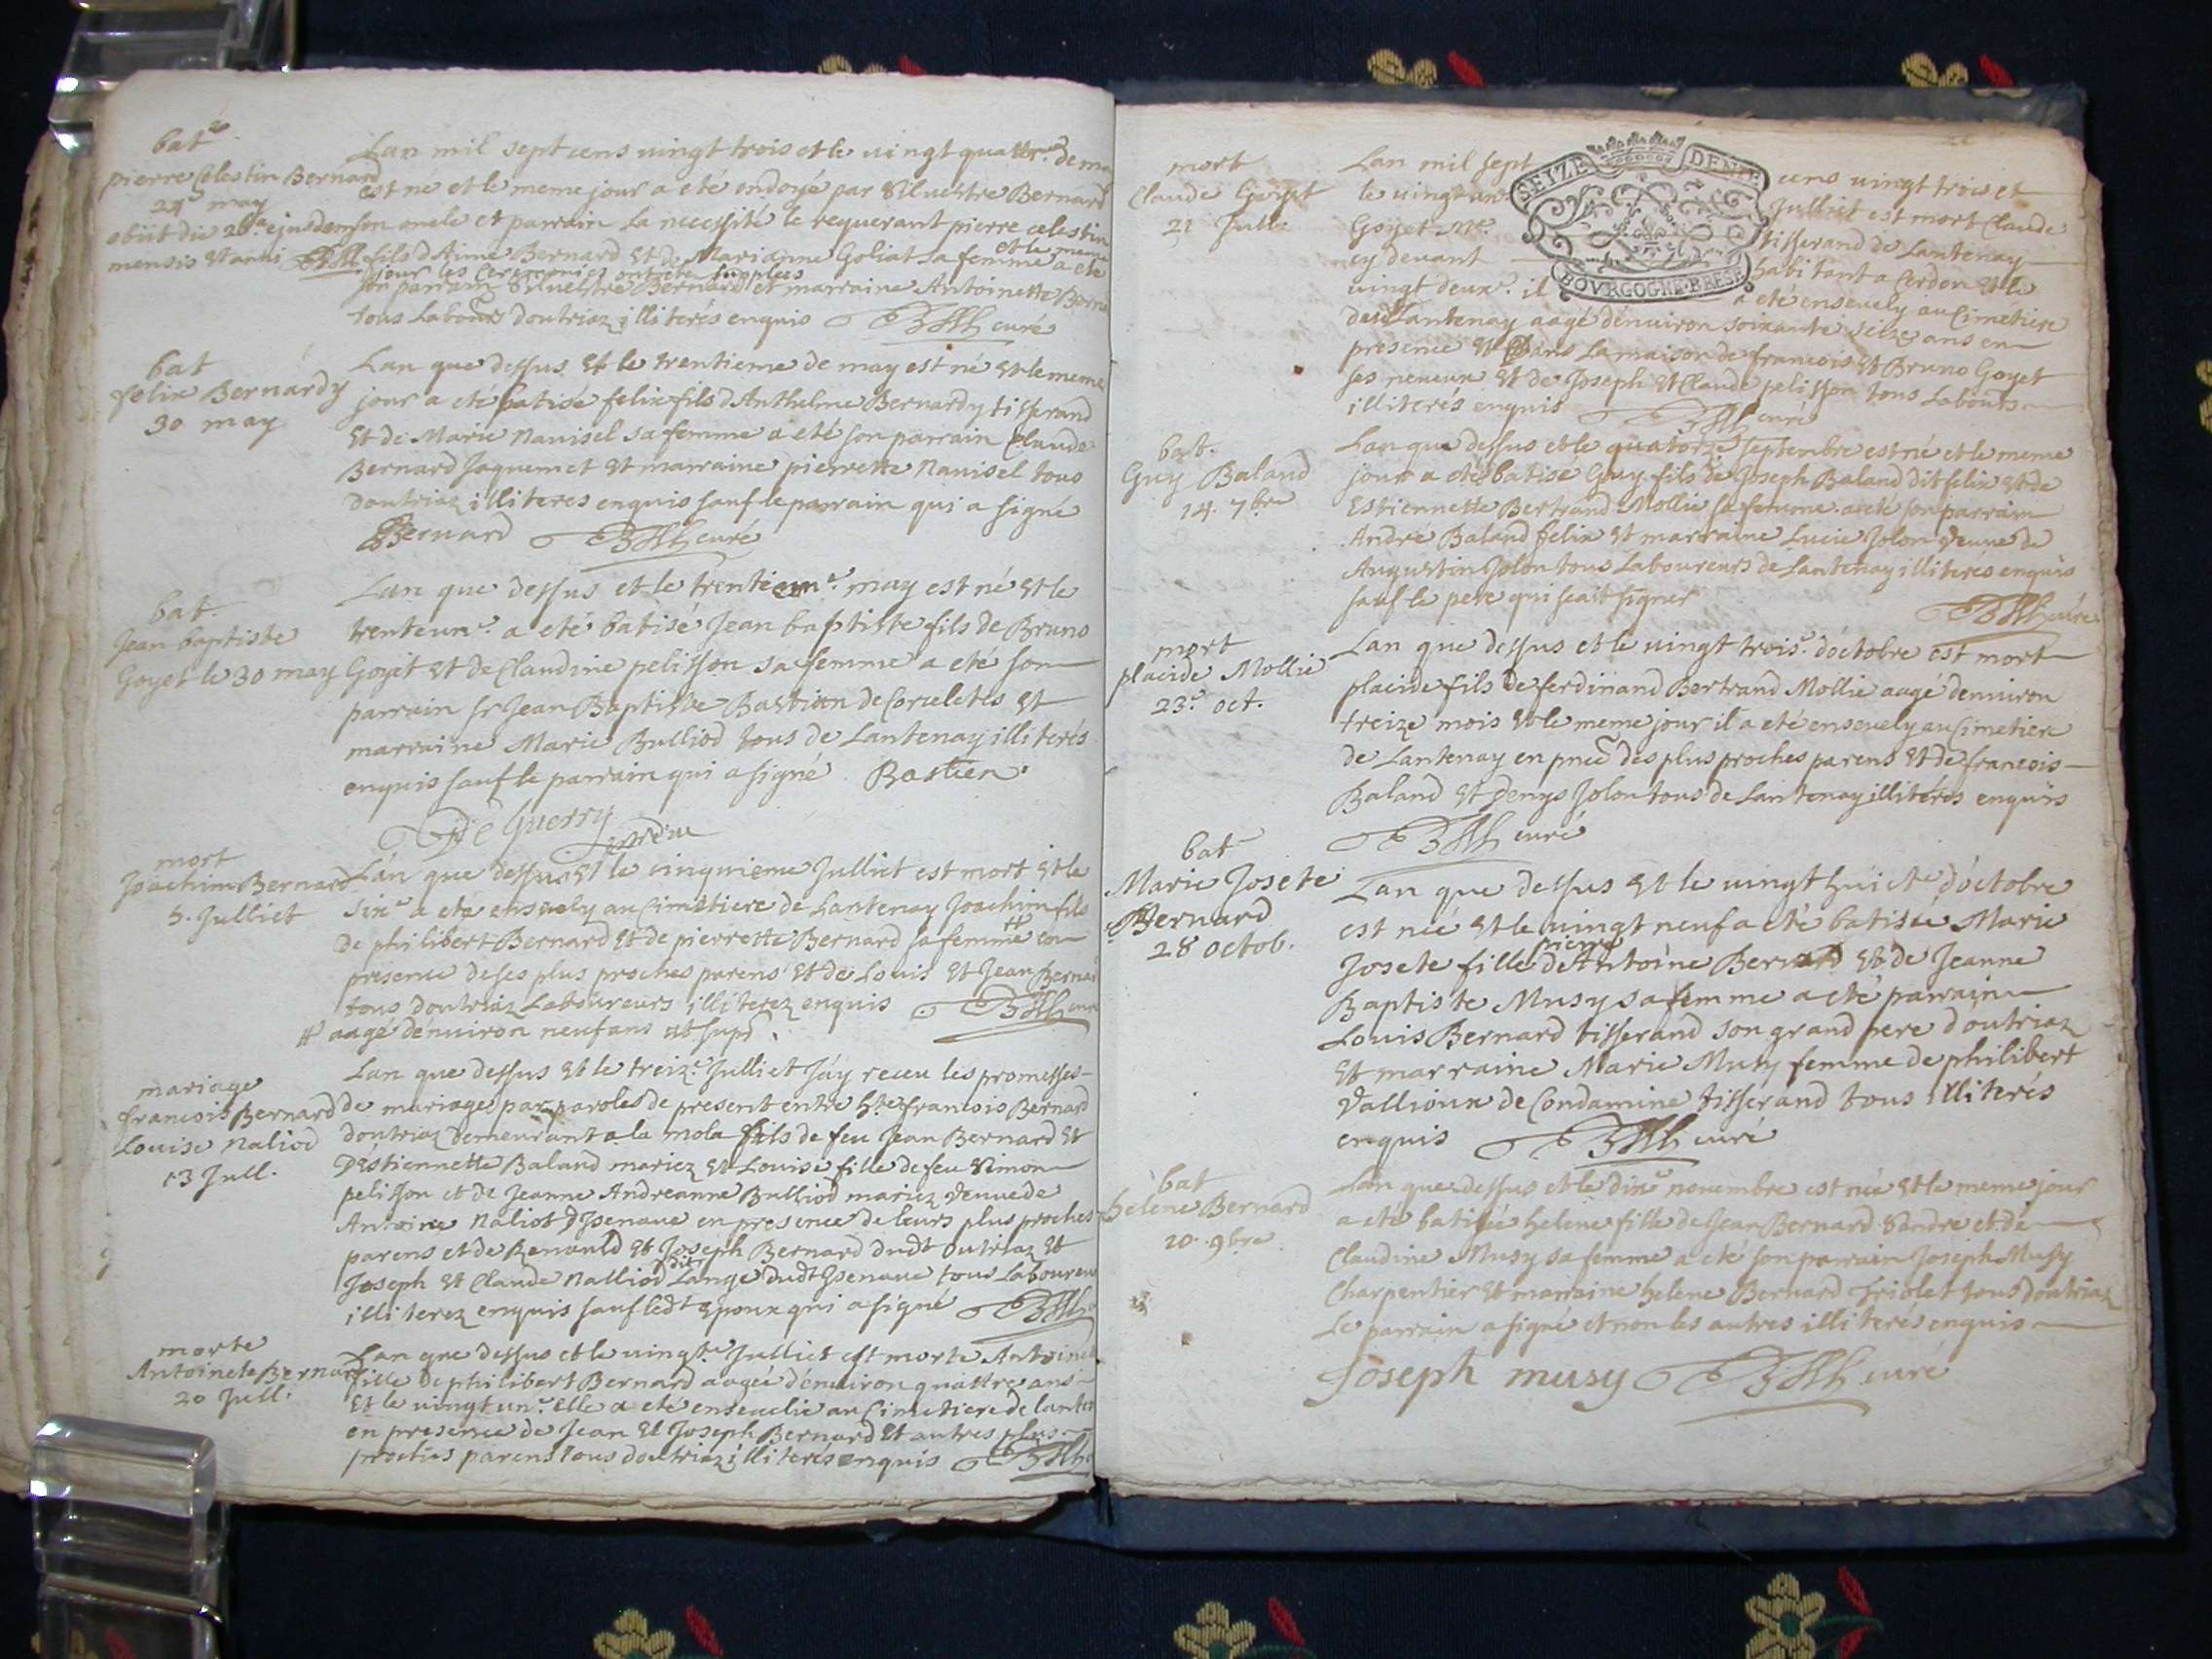 bat
pierre Celestin Bernard
24 may
obiit die 28 ejusdem
mensis et anni
Lan mil sept cens vingt trois et le vingt quatr.e de may
est né et le meme jour a eté ondoyé par Silvestre Bernard
son oncle et parrain la necessité le requerant pierre celestin
fils d'Aimé Bernard et de Marianne Goliat sa femme a eté
et le meme
jour les Ceremonies ont eté supplées
son parrain Silvestre Bernard et marraine Antoinette Berna
tous Labours doutriaz illiterés enquis curé
bat
felix Bernardy
30 may
Lan que dessus et le trentieme de may est né et le meme
jour a eté batisé felix fils dAnthelme Bernardy tisserand
et de Marie Navisel sa femme a eté son parrain Claude
Bernard Jaquemet et marraine pierrette Navisel tous
doutriaz illiteres enquis sauf le parrain qui a signé
Bernard curé
bat.
Jean baptiste
Goyet le 30 may
Lan que dessus et le trentiem.e may est né et le
trenteun.e a eté batisé Jean baptiste fils de Bruno
Goyet et de Claudine pelisson sa femme a eté son
parrain sr Jean Baptiste Bastien de Corcelets et
marraine Marie Bulliod tous de Lantenay illiterés
enquis sauf le parrain qui a signé Bastien
De Guerry
mort
Joachim Bernard
5. Julliet
Lan que dessus et le cinquieme Julliet est mort et le
six.e a eté ensevely au Cimetiere de Lantenay Joachim fils
de philibert Bernard et de pierrette Bernard sa femme # en
presence de ses plus proches parens et de Louis et Jean Bernar
tous doutriaz Laboureurs illiterez enquis curé
# aagé denviron neuf ans ut supr
mariage
francois Bernard
Louise Naliod
13 Jull.
Lan que dessus et le treiz.e Julliet Jay receu les promesses
de mariage par paroles de present entre h.te francois Bernard
doutriaz demeurant a la mola fils de feu Jean Bernard et
D'Estiennette Baland mariez et Louise fille de feu Simon
pelisson et de Jeanne Andreanne Bulliod mariez veuve de
Antoine Naliot d'Jsenave en presence de leurs plus proches
parens et de Renauld et Joseph Bernard dudt Outriaz et
dit
Joseph et Claude Nalliod Lange dudt Jsenave tous Laboureu
illiterez enquis sauf ledt Epoux qui a signé
morte
Antoinete Bernard
20 Jull.
Lan que dessus et le vingt.e Julliet est morte Antoinet
fille de philibert Bernard aagée denviron quattre ans
et le vingt un.e Elle a eté ensevelie au Cimetiere de lanten
en presence de Jean et Joseph Bernard et autres plus
proches parens tous doutriaz illiterés enquis
mort
Claude Goyet
21 Jull.
SEIZE DENIE
BOVRGOGNE·BRESE
Lan mil sept cens vingt trois et
le vingt un Julliet est mort Claude
Goyet M.e tisserand de Lantenay
cy devant habitant a Cerdon et le
vingt deux.e il a eté ensevely au Cimetiere
dud Lantenay aagé denviron soixante seize ans en
presence et dans la maison de francois et Bruno Goyet
ses neveux et de Joseph et Claude pelisson tous Labours
illiterés enquis curé
bat.
Guy Baland
14. 7bre
Lan que dessus et le quatorze septembre est né et le meme
jour a eté batisé Guy fils de Joseph Baland dit felix et de
Estiennette Bertrand Mollie sa femme a eté son parrain
André Baland felix et marraine Lucie Jolon veuve de
Augustin Jolon tous Laboureurs de Lantenay illiterés enquis
sauf le pere qui scait signer
curé
mort
placide Mollie
23.e oct.
Lan que dessus et le vingt trois.e doctobre est mort
placide fils de ferdinand Bertrand Mollie aagé denviron
treize mois et le meme jour il a eté ensevely au Cimetiere
de Lantenay en pnce des plus proches parens et de francois
Baland et Denys Jolon tous de Lantenay illiterés enquis
curé
bat
Marie Josete
Bernard
28 octob.
Lan que dessus et le vingt huict.e d'octobre
est née et le vingt neuf a eté batisée Marie
pierre
Josete fille d'Antoine Bernard et de Jeanne
Baptiste Musy sa femme a eté parrain
Louis Bernard tisserand son grand pere doutriaz
et marraine Marie Musy femme de philibert
Vallioux de Condamine tisserand tous illiterés
enquis curé
bat
helene Bernard
10. 9bre
Lan que dessus et le dix.e novembre est née et le meme jour
a eté batisée helene fille de Jean Bernard Sandre et de
Claudine Musy sa femme a eté son parrain Joseph Musy
Charpentier et marraine helene Bernard Friolet tous doutriaz
Le parrain a signé et non les autres illiterés enquis
Joseph musy curé